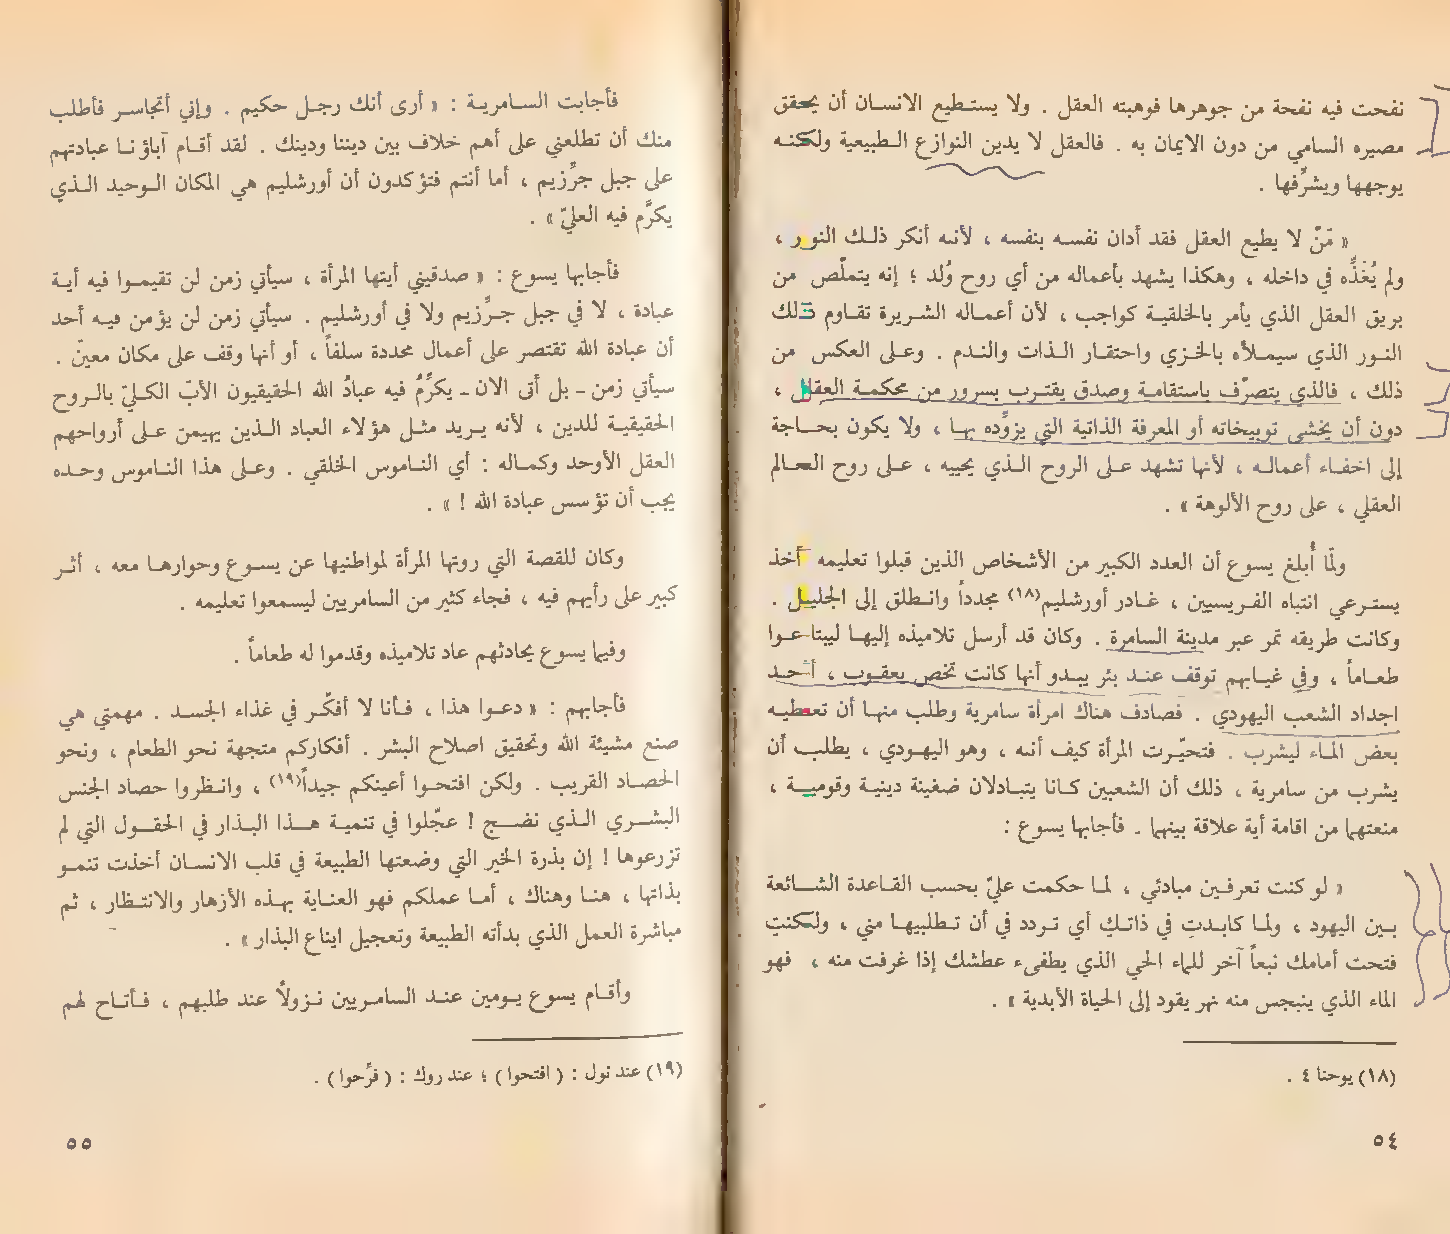 نفحت فيه نفحة من جوهرها فوهبته العقل . ولا يستطيع الانسان أن يحقق
مصيره السامي من دون الايمان به . فالعقل لا يدين النوازع الطبيعية ولكنه
يوجهها ويشرِّفها .
« مَنْ لا يطيع العقل فقد أدان نفسه بنفسه ، لأنه أنكر ذلك النور ،
ولم يُغَذِّه في داخله ، وهكذا يشهد بأعماله من أي روح وُلد ؛ إنه يتملّص من
بريق العقل الذي يأمر بالخلقية كواجب ، لأن أعماله الشريرة تقاوم ذلك
النور الذي سيملأه بالخزي واحتقار الذات والندم . وعلى العكس من
ذلك ، فالذي يتصرّف باستقامة وصدق يقترب بسرور من محكمة العقل ،
دون أن يخشى توبيخاته أو المعرفة الذاتية التي يزوِّده بها ، ولا يكون بحاجة
إلى اخفاء أعماله ، لأنها تشهد على الروح الذي يحييه ، على روح العالم
العقلي ، على روح الألوهة » .
ولمّا أُبلغ يسوع أن العدد الكبير من الأشخاص الذين قبلوا تعليمه أخذ
يسترعي انتباه الفريسيين ، غادر أورشليم(١٨) مجدداً وانطلق إلى الجليل .
وكانت طريقه تمر عبر مدينة السامرة . وكان قد أرسل تلاميذه إليها ليبتاعوا
طعاماً ، وفي غيابهم توقف عند بئر يبدو أنها كانت تخص يعقوب ، أحد
اجداد الشعب اليهودي . فصادف هناك امرأة سامرية وطلب منها أن تعطيه
بعض الماء ليشرب . فتحيّرت المرأة كيف أنه ، وهو اليهودي ، يطلب أن
يشرب من سامرية ، ذلك أن الشعبين كانا يتبادلان ضغينة دينية وقومية ،
منعتهما من اقامة أية علاقة بينهما . فأجابها يسوع :
« لو كنت تعرفين مبادئي ، لما حكمت عليّ بحسب القاعدة الشائعة
بين اليهود ، ولما كابدتِ في ذاتكِ أي تردد في أن تطلبيها مني ، ولكنتِ
فتحت أمامك نبعاً آخر للماء الحي الذي يطفىء عطشك إذا غرفت منه ، فهو
الماء الذي ينبجس منه نهر يقود إلى الحياة الأبدية » .
(١٨) يوحنا ٤ .
٥٤
فأجابت السامرية : « أرى أنك رجل حكيم . وإني أتجاسر فأطلب
منك أن تطلعني على أهم خلاف بين ديننا ودينك . لقد أقام آباؤنا عبادتهم
على جبل جرِّزيم ، أما أنتم فتؤكدون أن أورشليم هي المكان الوحيد الذي
يكرَّم فيه العليّ » .
فأجابها يسوع : « صدقيني أيتها المرأة ، سيأتي زمن لن تقيموا فيه أية
عبادة ، لا في جبل جرِّزيم ولا في أورشليم . سيأتي زمن لن يؤمن فيه أحد
أن عبادة الله تقتصر على أعمال محددة سلفاً ، أو أنها وقف على مكان معينّ .
سيأتي زمن - بل أتى الان - يكرِّمُ فيه عبادُ الله الحقيقيون الأبّ الكليّ بالروح
الحقيقية للدين ، لأنه يريد مثل هؤلاء العباد الذين يهيمن على أرواحهم
العقل الأوحد وكماله : أي الناموس الخلقي . وعلى هذا الناموس وحده
يجب أن تؤسس عبادة الله ! » .
وكان للقصة التي روتها المرأة لمواطنيها عن يسوع وحوارها معه ، أثر
كبير على رأيهم فيه ، فجاء كثير من السامريين ليسمعوا تعليمه .
وفيما يسوع يحادثهم عاد تلاميذه وقدموا له طعاماً .
فأجابهم : « دعوا هذا ، فأنا لا أفكّر في غذاء الجسد . مهمتي هي
صنع مشيئة الله وتحقيق اصلاح البشر . أفكاركم متجهة نحو الطعام ، ونحو
الحصاد القريب . ولكن افتحوا أعينكم جيداً(١٩) ، وانظروا حصاد الجنس
البشري الذي نضج ! عجّلوا في تنمية هذا البذار في الحقول التي لم
تزرعوها ! إن بذرة الخير التي وضعتها الطبيعة في قلب الانسان أخذت تنمو
بذاتها ، هنا وهناك ، أما عملكم فهو العناية بهذه الأزهار والانتظار ، ثم
مباشرة العمل الذي بدأته الطبيعة وتعجيل ايناع البذار » .
وأقام يسوع يومين عند السامريين نزولاً عند طلبهم ، فأتاح لهم
(١٩) عند نول : ( افتحوا ) ؛ عند روك : ( فرِّحوا ) .
٥٥